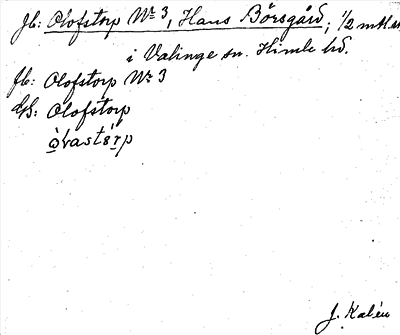 Jb: Olofstorp No 3, Hans Börsgård; 1/2 mtl.
i Valinge sn. Himle hd.
fb: Olofstorp No 3
GS: Olofstorp
òvastórp
J. Kalén